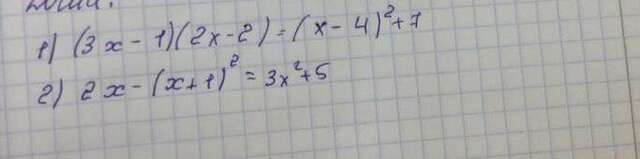 1) (3x-1)(2x-2)=(x-4)²+7
2) 2x-(x+1)²=3x²+5